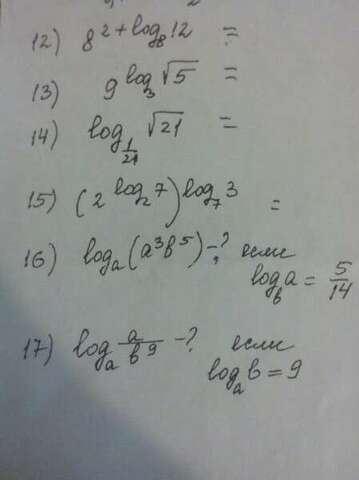 12) 8^{2+log_8 12} =
13) 9^{log_3 √5} =
14) log_{1/21} √21 =
15) (2^{log_2 7})^{log_7 3} =
16) log_a (a³b⁵) - ? если log_b a = 5/14
17) log_a a/b⁹ - ? если log_a b = 9